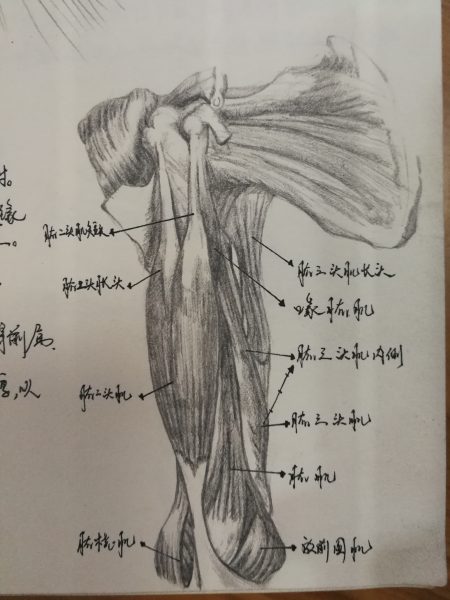 时。
缘
一。
肱二头肌短头
肱二头肌长头
肱二头肌
肱桡肌
肱三头肌长头
喙肱肌
肱三头肌内侧
肱三头肌
肱肌
旋前圆肌
前属
厚,以